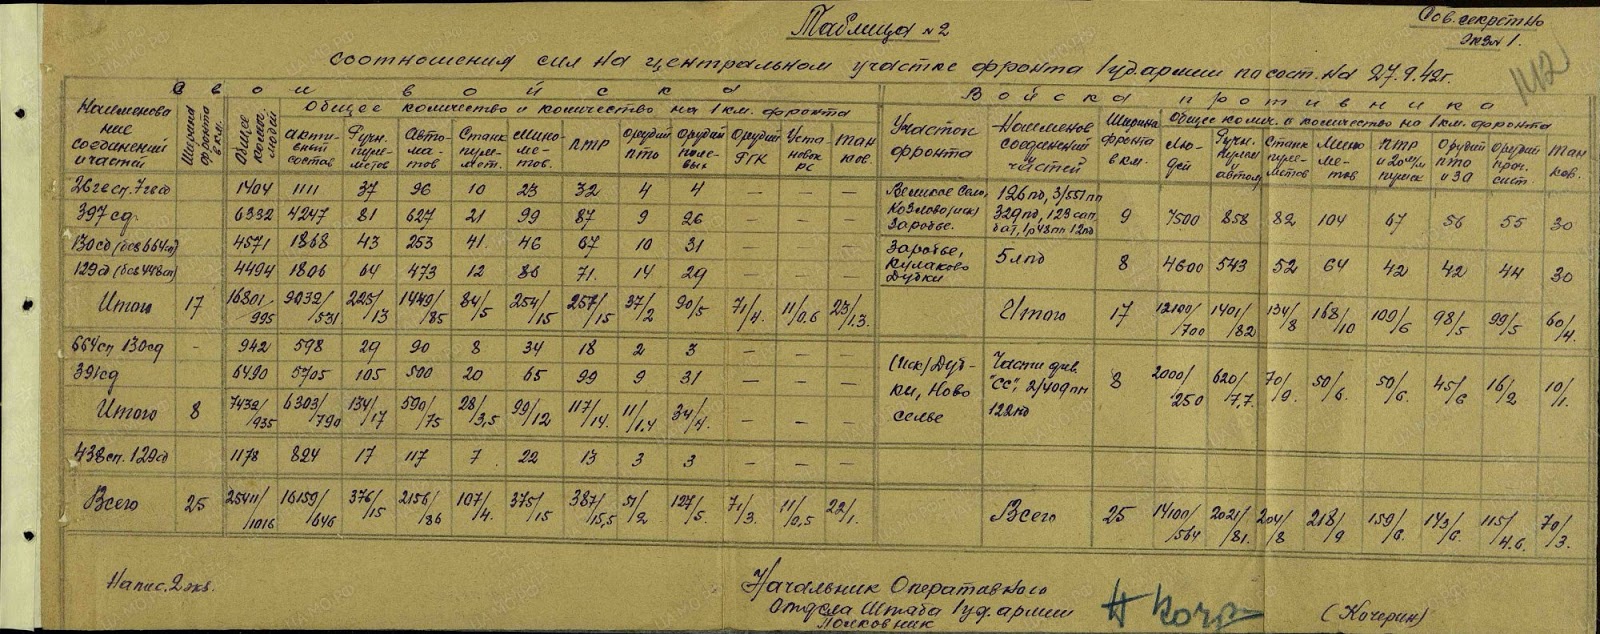 Сов. секретно
Экз № 1.
Таблица № 2
соотношения сил на центральном участке фронта 1 уд. армии по сост. на 27.9.42г.
Свои войска | Войска противника
Наименование соединений и частей | Ширина фронта в км. | Общее колич. людей | Общее количество и количество на 1 км. фронта | Участок фронта | Наименов соединений и частей | Ширина фронта в км. | Общее колич. и количество на 1 км. фронта
активный состав | Ручн. пулеметов | Автоматов | Станк пулемет. | Минометов. | ПТР | Орудий ПТО | Орудий полевых | Орудий РГК | Установок РС | Танков. | Людей | Ручн. пулем и автом. | Станк пулеметов | Минометов | ПТР и 20 м/м пушек | Орудий ПТО и ЗА | Орудий проч. сист. | Танков.
26 гв сп. 7 гв сд | 1404 | 1111 | 37 | 96 | 10 | 23 | 32 | 4 | 4 | – | – | – | Великое Село, Козлово (иск) Заробье. | 126 пд, 3/551 пп 329 пд, 123 сап. бат, 1р 48 пп 12 пд | 9 | 7500 | 858 | 82 | 104 | 67 | 56 | 55 | 30
397 сд. | 6332 | 4247 | 81 | 627 | 21 | 99 | 87 | 9 | 26 | – | – | –
130 сд (без 664 сп) | 4571 | 1868 | 43 | 253 | 41. | 46 | 67 | 10 | 31 | – | – | – | Заробье, Кулаково Дубки | 5 лпд | 8 | 4600 | 543 | 52 | 64 | 42 | 42 | 44 | 30
129 сд (без 448 сп) | 4494 | 1806 | 64 | 473 | 12 | 86 | 71. | 14 | 29 | – | – | –
Итого | 17 | 16801/995 | 9032/531 | 225/13 | 1449/85 | 84/5 | 254/15 | 257/15 | 37/2 | 90/5 | 71/4. | 11/0,6 | 23/1.3. | Итого | 17 | 12100/700 | 1401/82 | 134/8 | 168/10 | 109/6 | 98/5 | 99/5 | 60/4.
664 сп 130 сд | - | 942 | 598 | 29 | 90 | 8 | 34 | 18 | 2 | 3 | – | – | –
391 сд | 6490 | 5705 | 105 | 500 | 20 | 65 | 99 | 9 | 31 | – | – | – | (иск) Дубки, Ново селье | Части див. "СС", 2/409 пп 122 пд | 8 | 2000/250 | 620/7,7. | 70/9. | 50/6. | 50/6. | 45/6 | 16/2 | 10/1.
Итого | 8 | 7432/935 | 6303/790 | 134/17 | 590/75 | 28/3,5 | 99/12 | 117/14. | 11/1.4 | 34/4. | – | – | –
438 сп. 129 сд | 1178 | 824 | 17 | 117 | 7 | 22 | 13 | 3 | 3 | – | – | –
Всего | 25 | 25411/1016 | 16159/646 | 376/15 | 2156/86 | 107/4. | 375/15 | 387/15,5 | 51/2 | 127/5. | 71/3. | 11/0,5 | 22/1. | Всего | 25 | 14100/564 | 2021/81. | 204/8 | 218/9 | 159/6. | 143/6. | 115/4.6. | 70/3.
Напис. 2 экз.
Начальник Оперативного
Отдела Штаба 1 уд. армии
Полковник
(Кочерин)